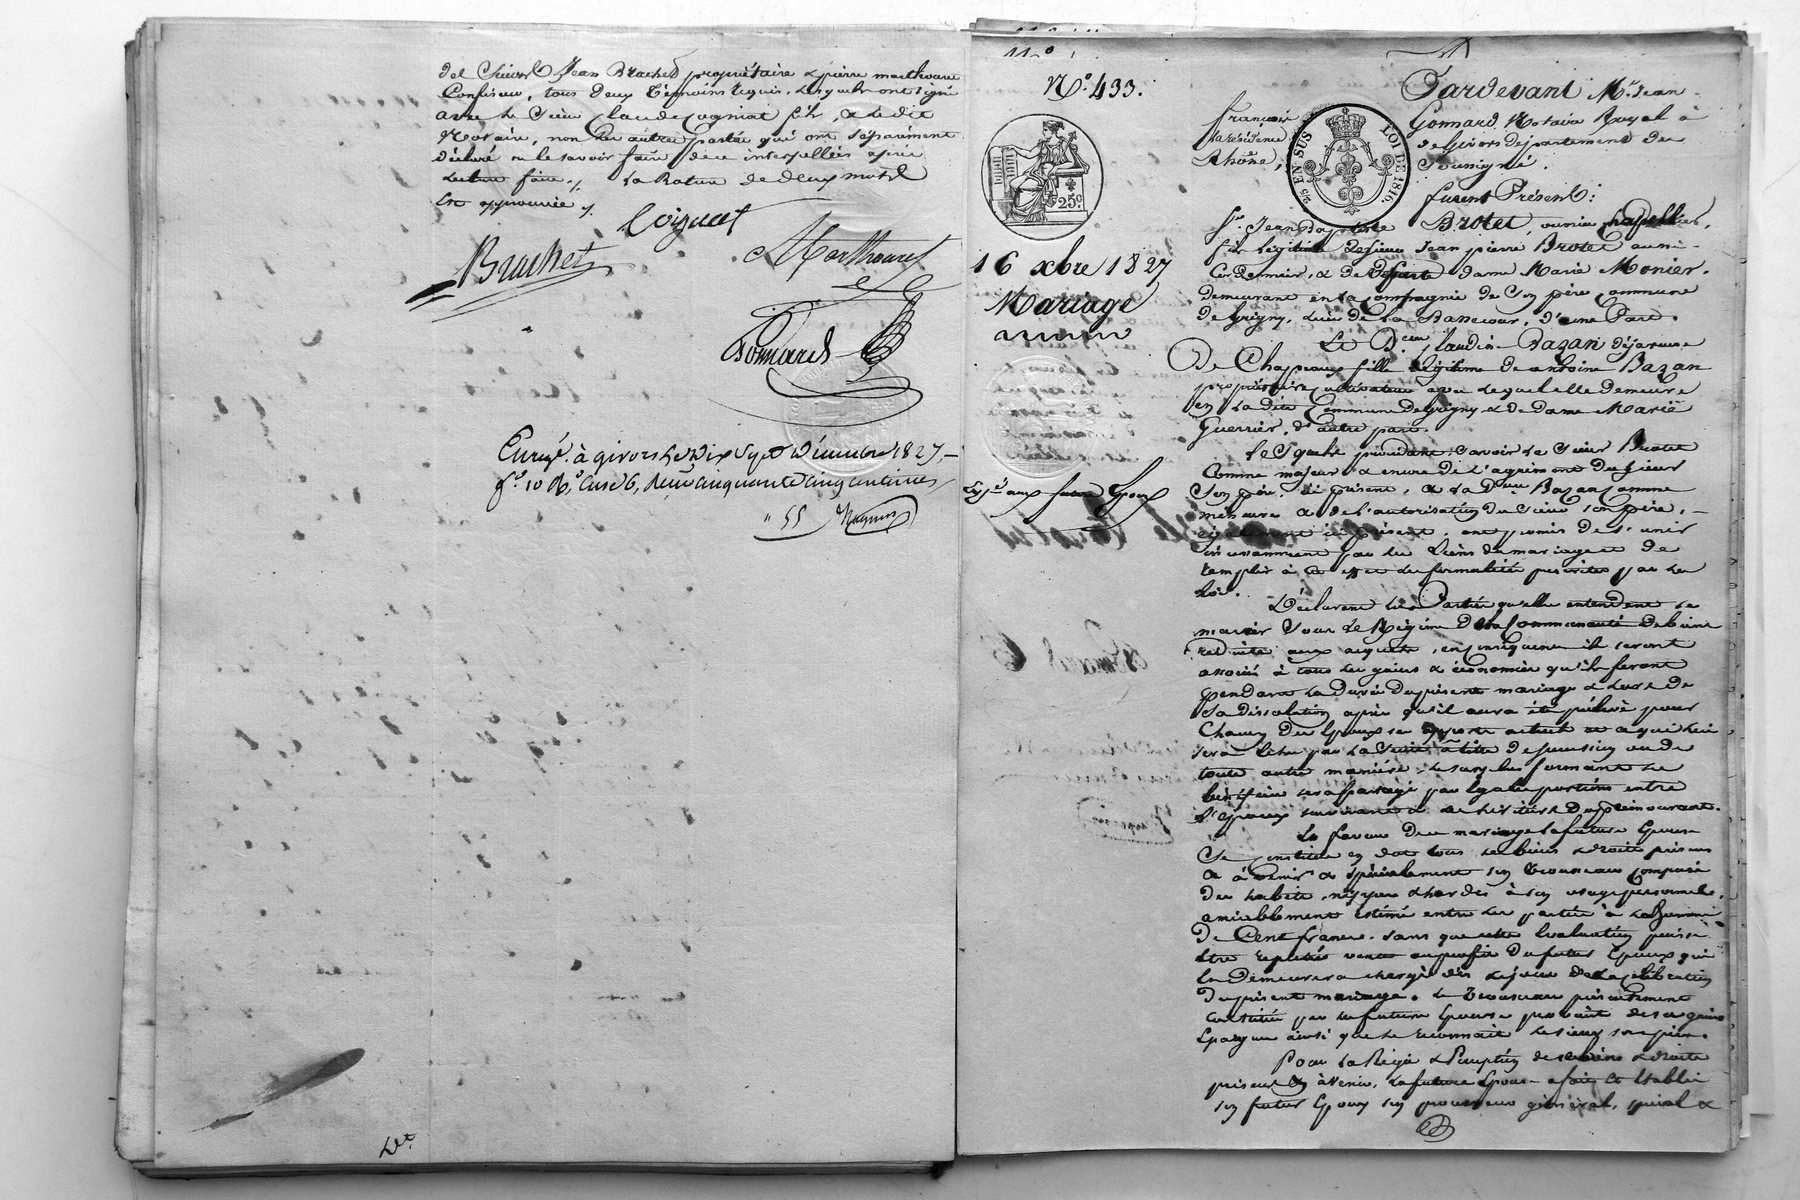 del Sieurs Jean Brachet propriétaire & pierre marthouret
Confiseur, tous deux témoins requis, lesquels ont signé
avec le Sieur Claude Coignet fils, & le dit
Notaire, non les autres parties qui ont séparément
déclaré ne le savoir faire de ce interpellées après
lecture faite /. La Rature de deux mots
est approuvée /.
Coignet
Brachet
Marthouret
Gonnard
Enregé. à givors le Dix Sept Décembre 1827, —
fo. 10 Ro. Case 6, Reçu cinquante cinq centimes
" 55
Det
11.°
N.° 433.
25 EN SUS
LOI DE 1816.
25c
16 xbre 1827
Mariage
Expé. aux futurs Epoux
Pardevant Me. Jean-
françois Gonnard, Notaire Royal à
la résidence de Givors département du
Rhône, Soussigné.
furent Présents:
Sr. Jean Baptiste BROTET, ouvrier chapellier,
fils légitime de Sieur Jean pierre Brotet aussi
Cordonnier, & de défunte dame Marie Monier,
demeurant en la Compagnie de Son père, Commune
de Grigny, lieu de la Bassecour, d'une Part.
Et Dlle. Claudine Bazan déjarenne
De Chapeaux fille légitime de antoine Bazan
propriétaire cultivateur avec lequel elle demeure
en la dite Commune de Grigny & de dame Marie
Guerrier, d'autre part.
Lesquels procédant, Savoir le Sieur Brotet
Comme majeur & encore de l'agrément du Sieur
Son père, ici présent, & la Dlle. Bazan Comme
mineure & de l'autorisation du Sieur son père, —
également ici présent, ont promis de s'unir
incessamment par les liens du mariage et de
remplir à cet effet les formalités prescrites par la
loi.
Déclarent les Parties qu'elles entendent se
marier Sous le Régime de la Communauté de biens
réduite aux acquets, en conséquence ils seront
associés à tous les gains & économies qu'ils feront
pendant la durée du présent mariage & lors de
Sa dissolution après qu'il aura été prélevé pour
Chacun des Epoux ses apports actuels et ce qui lui
sera échu par la Suite à titre de Succession ou de
toute autre manière, le surplus formant le
bénéfice sera partagé par égales portions entre
l'Epoux survivant & les héritiers du prémourant.
En faveur de ce mariage la future Epouse
Se constitue en dot tous ses biens & droits présens
& à venir & spécialement son trousseau composé
des habits, linges & hardes à son usage personnel,
amiablement estimé entre les parties à la Somme
De Cent francs, sans que cette évaluation puisse
être réputée vente au profit du futur Epoux qui
en Demeurera chargé dès le jour de la célébration
du présent mariage. Le trousseau présentement
constitué par la future Epouse provient de ses gains
Epargnes ainsi que le reconnait le sieur son père.
Pour la Régie & Perception de ses biens & droits
présens & à venir, la future Epouse a fait et établi
son futur Epoux son procureur général, spécial &